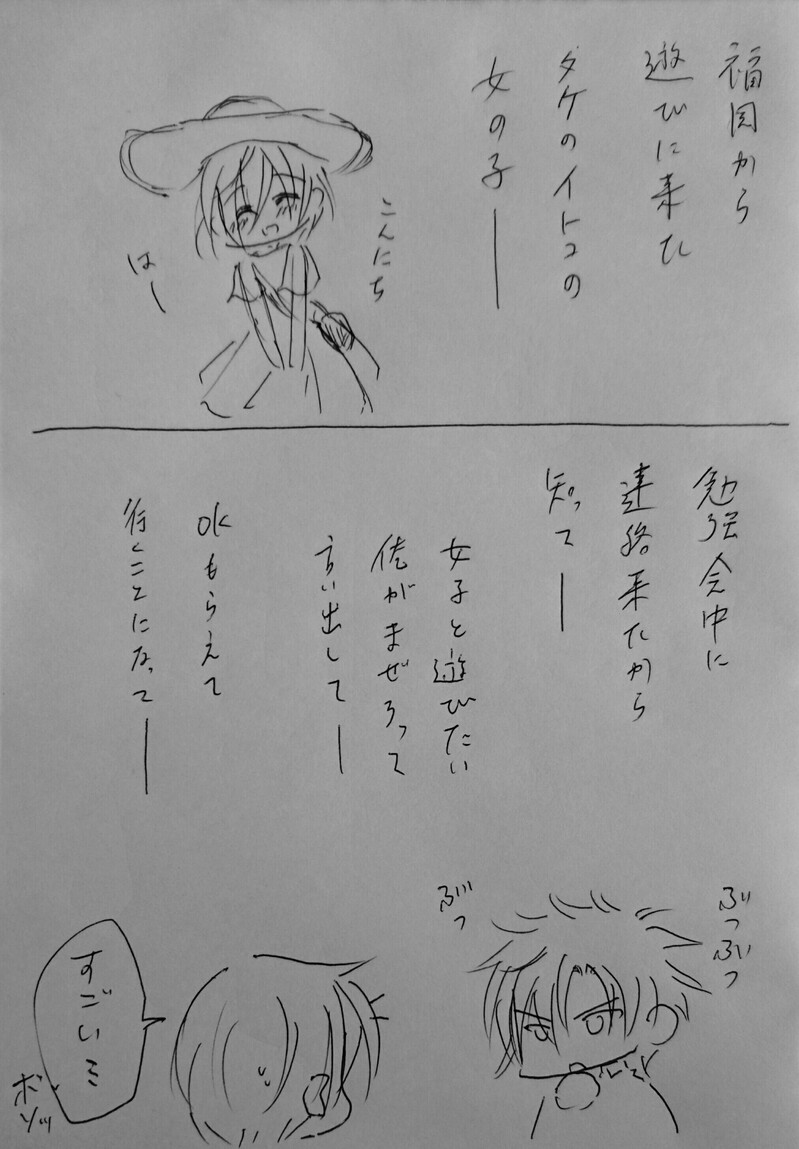 福岡から
遊びに来た
タケのイトコの
女の子―
こんにち
はー
勉強会中に
連絡来たから
知って―
女子と遊びたい
佐がまぜろって
言い出して―
OKもらえて
行くことになって―
ぶつぶつ
ぶつ
すごいミ
ボソッ